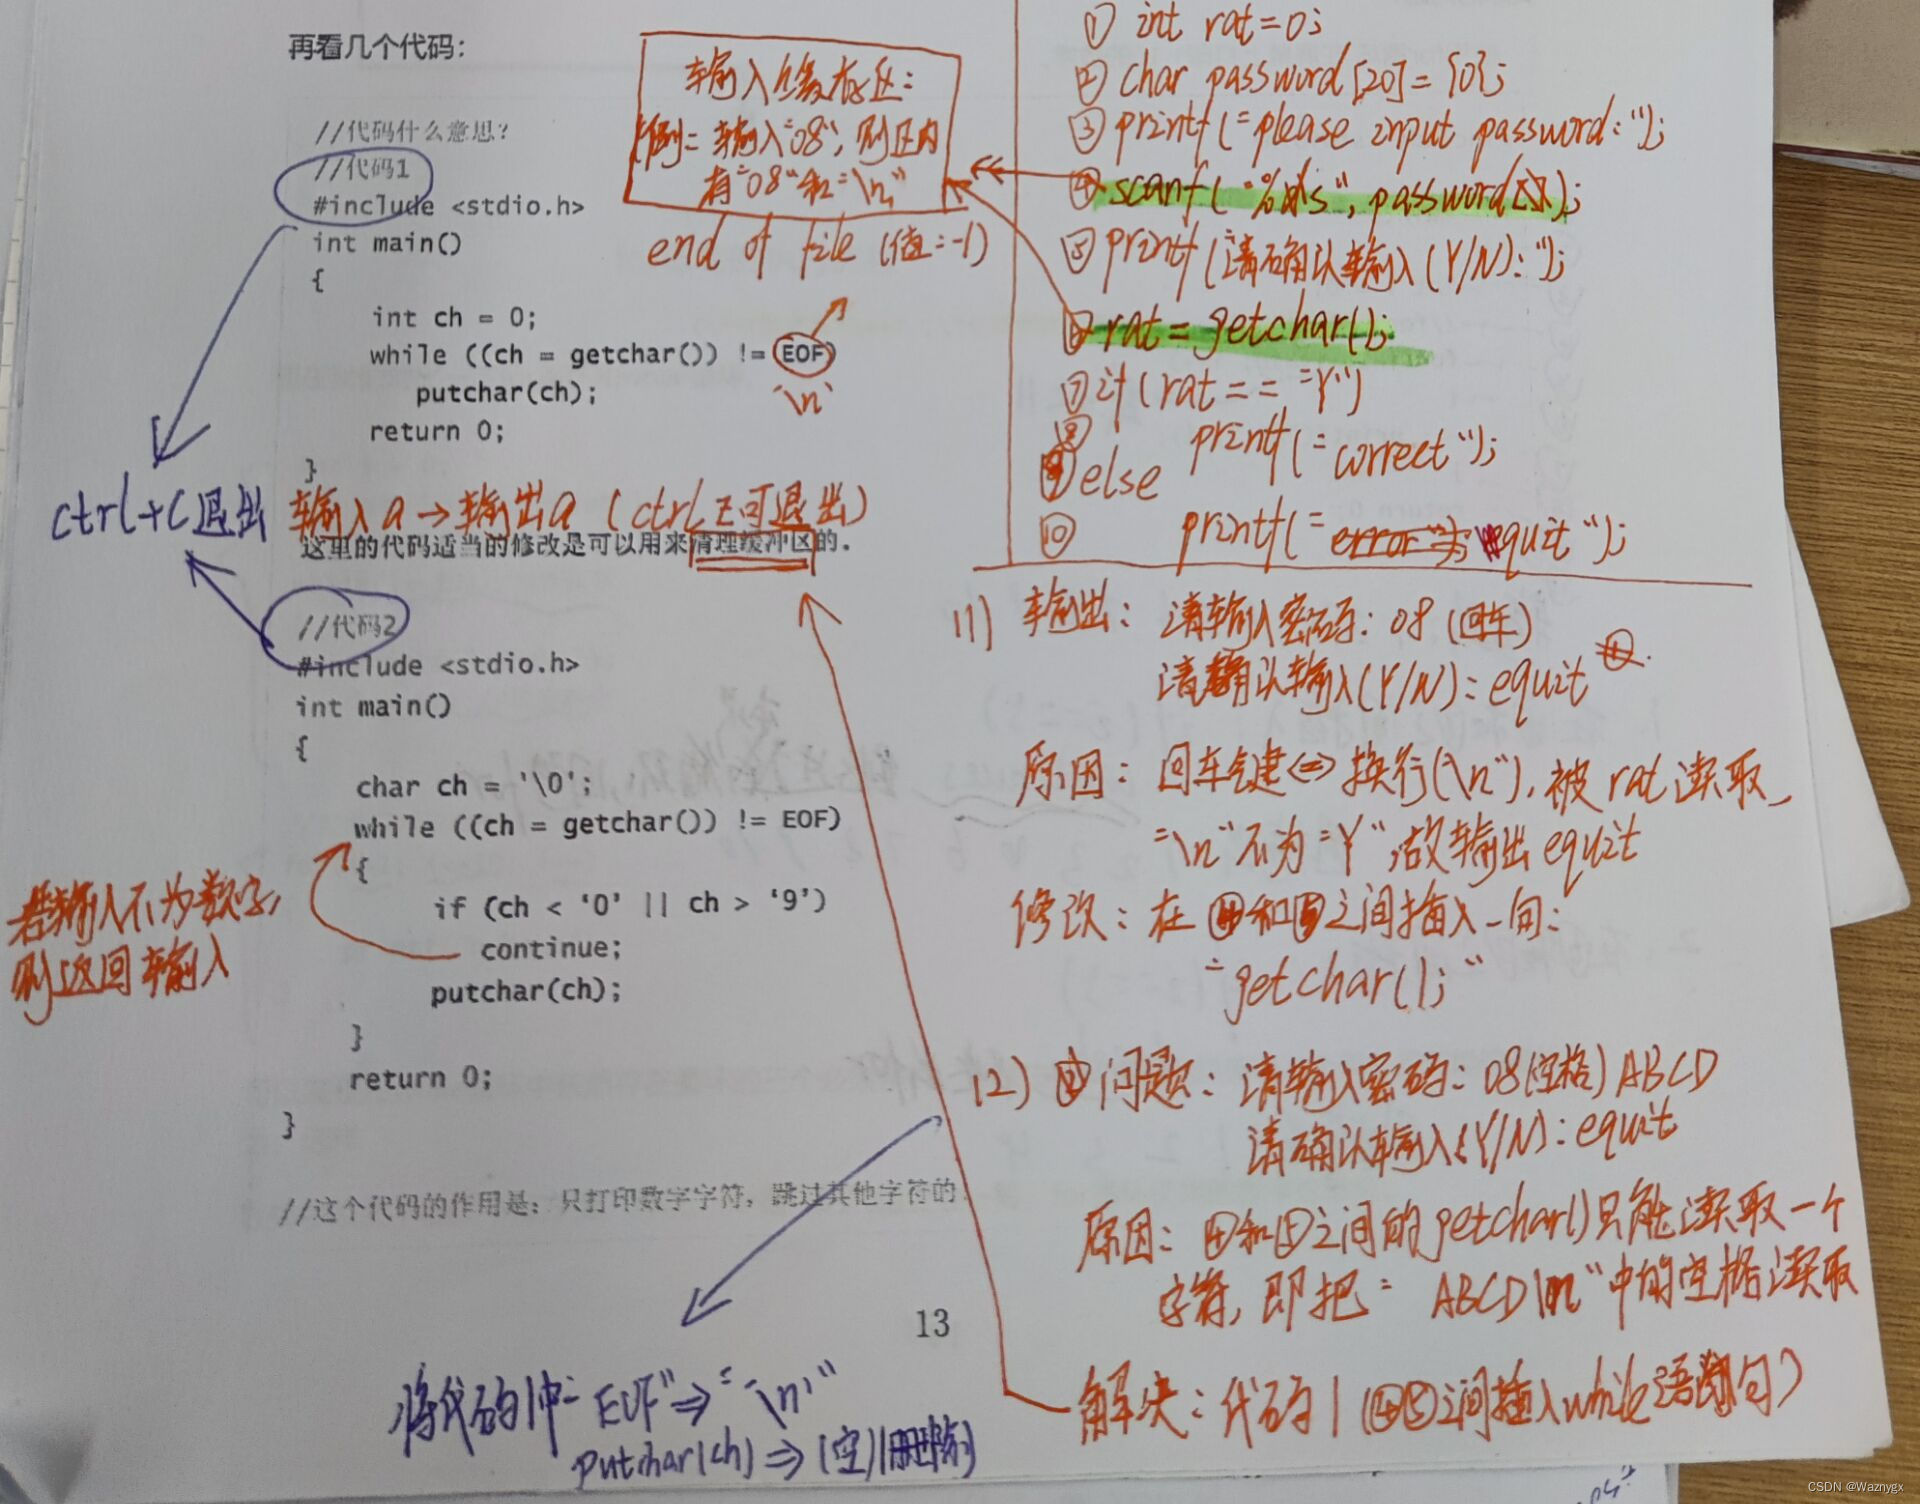 再看几个代码：
//代码什么意思？
//代码1
#include <stdio.h>
int main()
{
int ch = 0;
while ((ch = getchar()) != EOF)
'\n'
putchar(ch);
return 0;
}
输入缓存区：
例=输入"08"，则区内
有"08"和"\n"
end of file (值=-1)
ctrl+C退出
输入a→输出a (ctrl Z可退出)
这里的代码适当的修改是可以用来清理缓冲区的.
//代码2
#include <stdio.h>
int main()
{
char ch = '\0';
while ((ch = getchar()) != EOF)
{
if (ch < '0' || ch > '9')
continue;
putchar(ch);
}
return 0;
}
若输入不为数字，
则返回输入
//这个代码的作用是：只打印数字字符，跳过其他字符的.
13
将代码1中"EOF"⇒"'\n'"
putchar(ch)⇒(空)|删除
① int rat=0;
② char password[20]={0};
③ printf("please input password:");
④ scanf("%s", password);
⑤ printf(请确认输入(Y/N):");
⑥ rat=getchar();
⑦ if(rat=="Y")
⑧ printf("correct");
⑨ else
⑩ printf("equit");
(1) 输出：请输入密码：08(回车)
请确认输入(Y/N)：equit
原因：回车键⇔换行(\n"),被rat读取,
"\n"不为"Y",故输出equit
修改：在④和⑤之间插入一句：
"getchar();"
(2) 问题：请输入密码：08(空格)ABCD
请确认输入(Y/N)：equit
原因：④和⑤之间的getchar()只能读取一个
字符，即把" ABCD\n"中的空格读取
解决：代码1(④⑤之间插入while语句)
CSDN @Waznygx